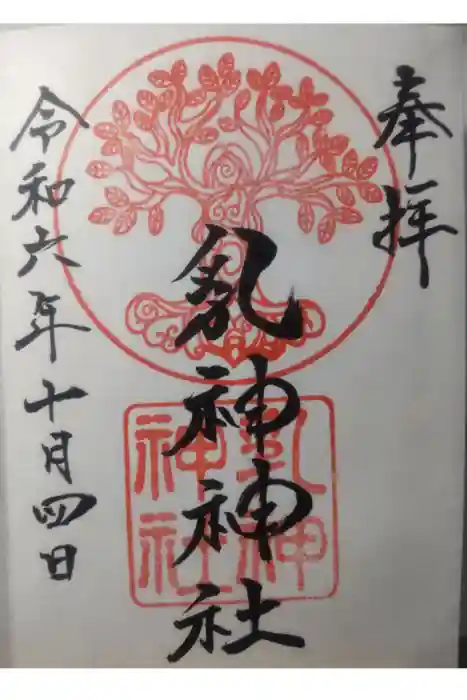 奉拝
乳神神社
令和六年十月四日
乳神
神社